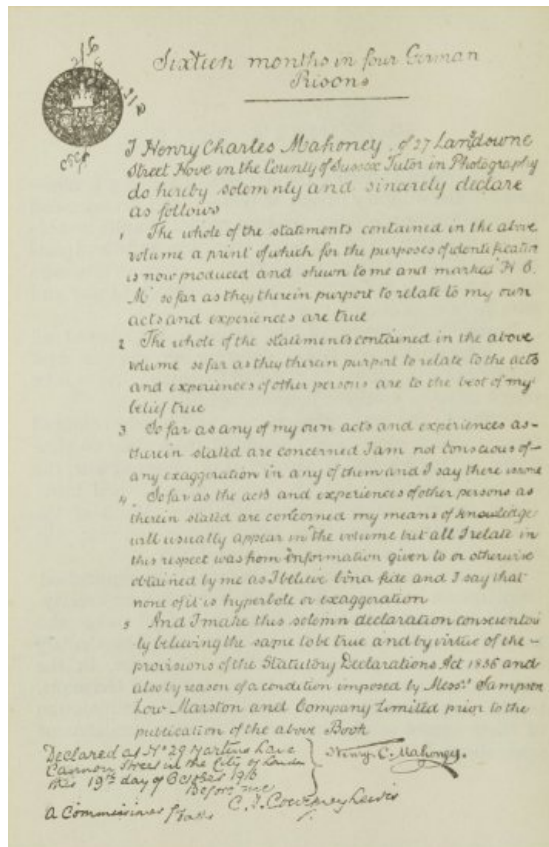 Sixteen months in four German
Prisons
I Henry Charles Mahoney of 27 Lansdowne
Street Hove in the County of Sussex Tutor in Photography
do hereby solemnly and sincerely declare
as follows
1 The whole of the statements contained in the above
volume a print of which for the purposes of identification
is now produced and shewn to me and marked "H.C.
M" so far as they therein purport to relate to my own
acts and experiences are true
2 The whole of the statements contained in the above
volume so far as they therein purport to relate to the acts
and experiences of other persons are to the best of my
belief true
3 So far as any of my own acts and experiences as
therein stated are concerned I am not conscious of
any exaggeration in any of them and I say there is none
4 So far as the acts and experiences of other persons as
therein stated are concerned my means of knowledge
will usually appear in the volume but all I relate in
this respect was from information given to or otherwise
obtained by me as I believe bona fide and I say that
none of it is hyperbole or exaggeration
5 And I make this solemn declaration conscientious
ly believing the same to be true and by virtue of the
provisions of the Statutory Declarations Act 1835 and
also by reason of a condition imposed by Messrs Sampson
Low Marston and Company Limited prior to the
publication of the above Book
Declared at No 29 Martins Lane
Cannon Street in the City of London
this 19th day of October 191
Before me
Henry C. Mahoney.
C. J. Courtney Lewis
A Commissioner for Oaths